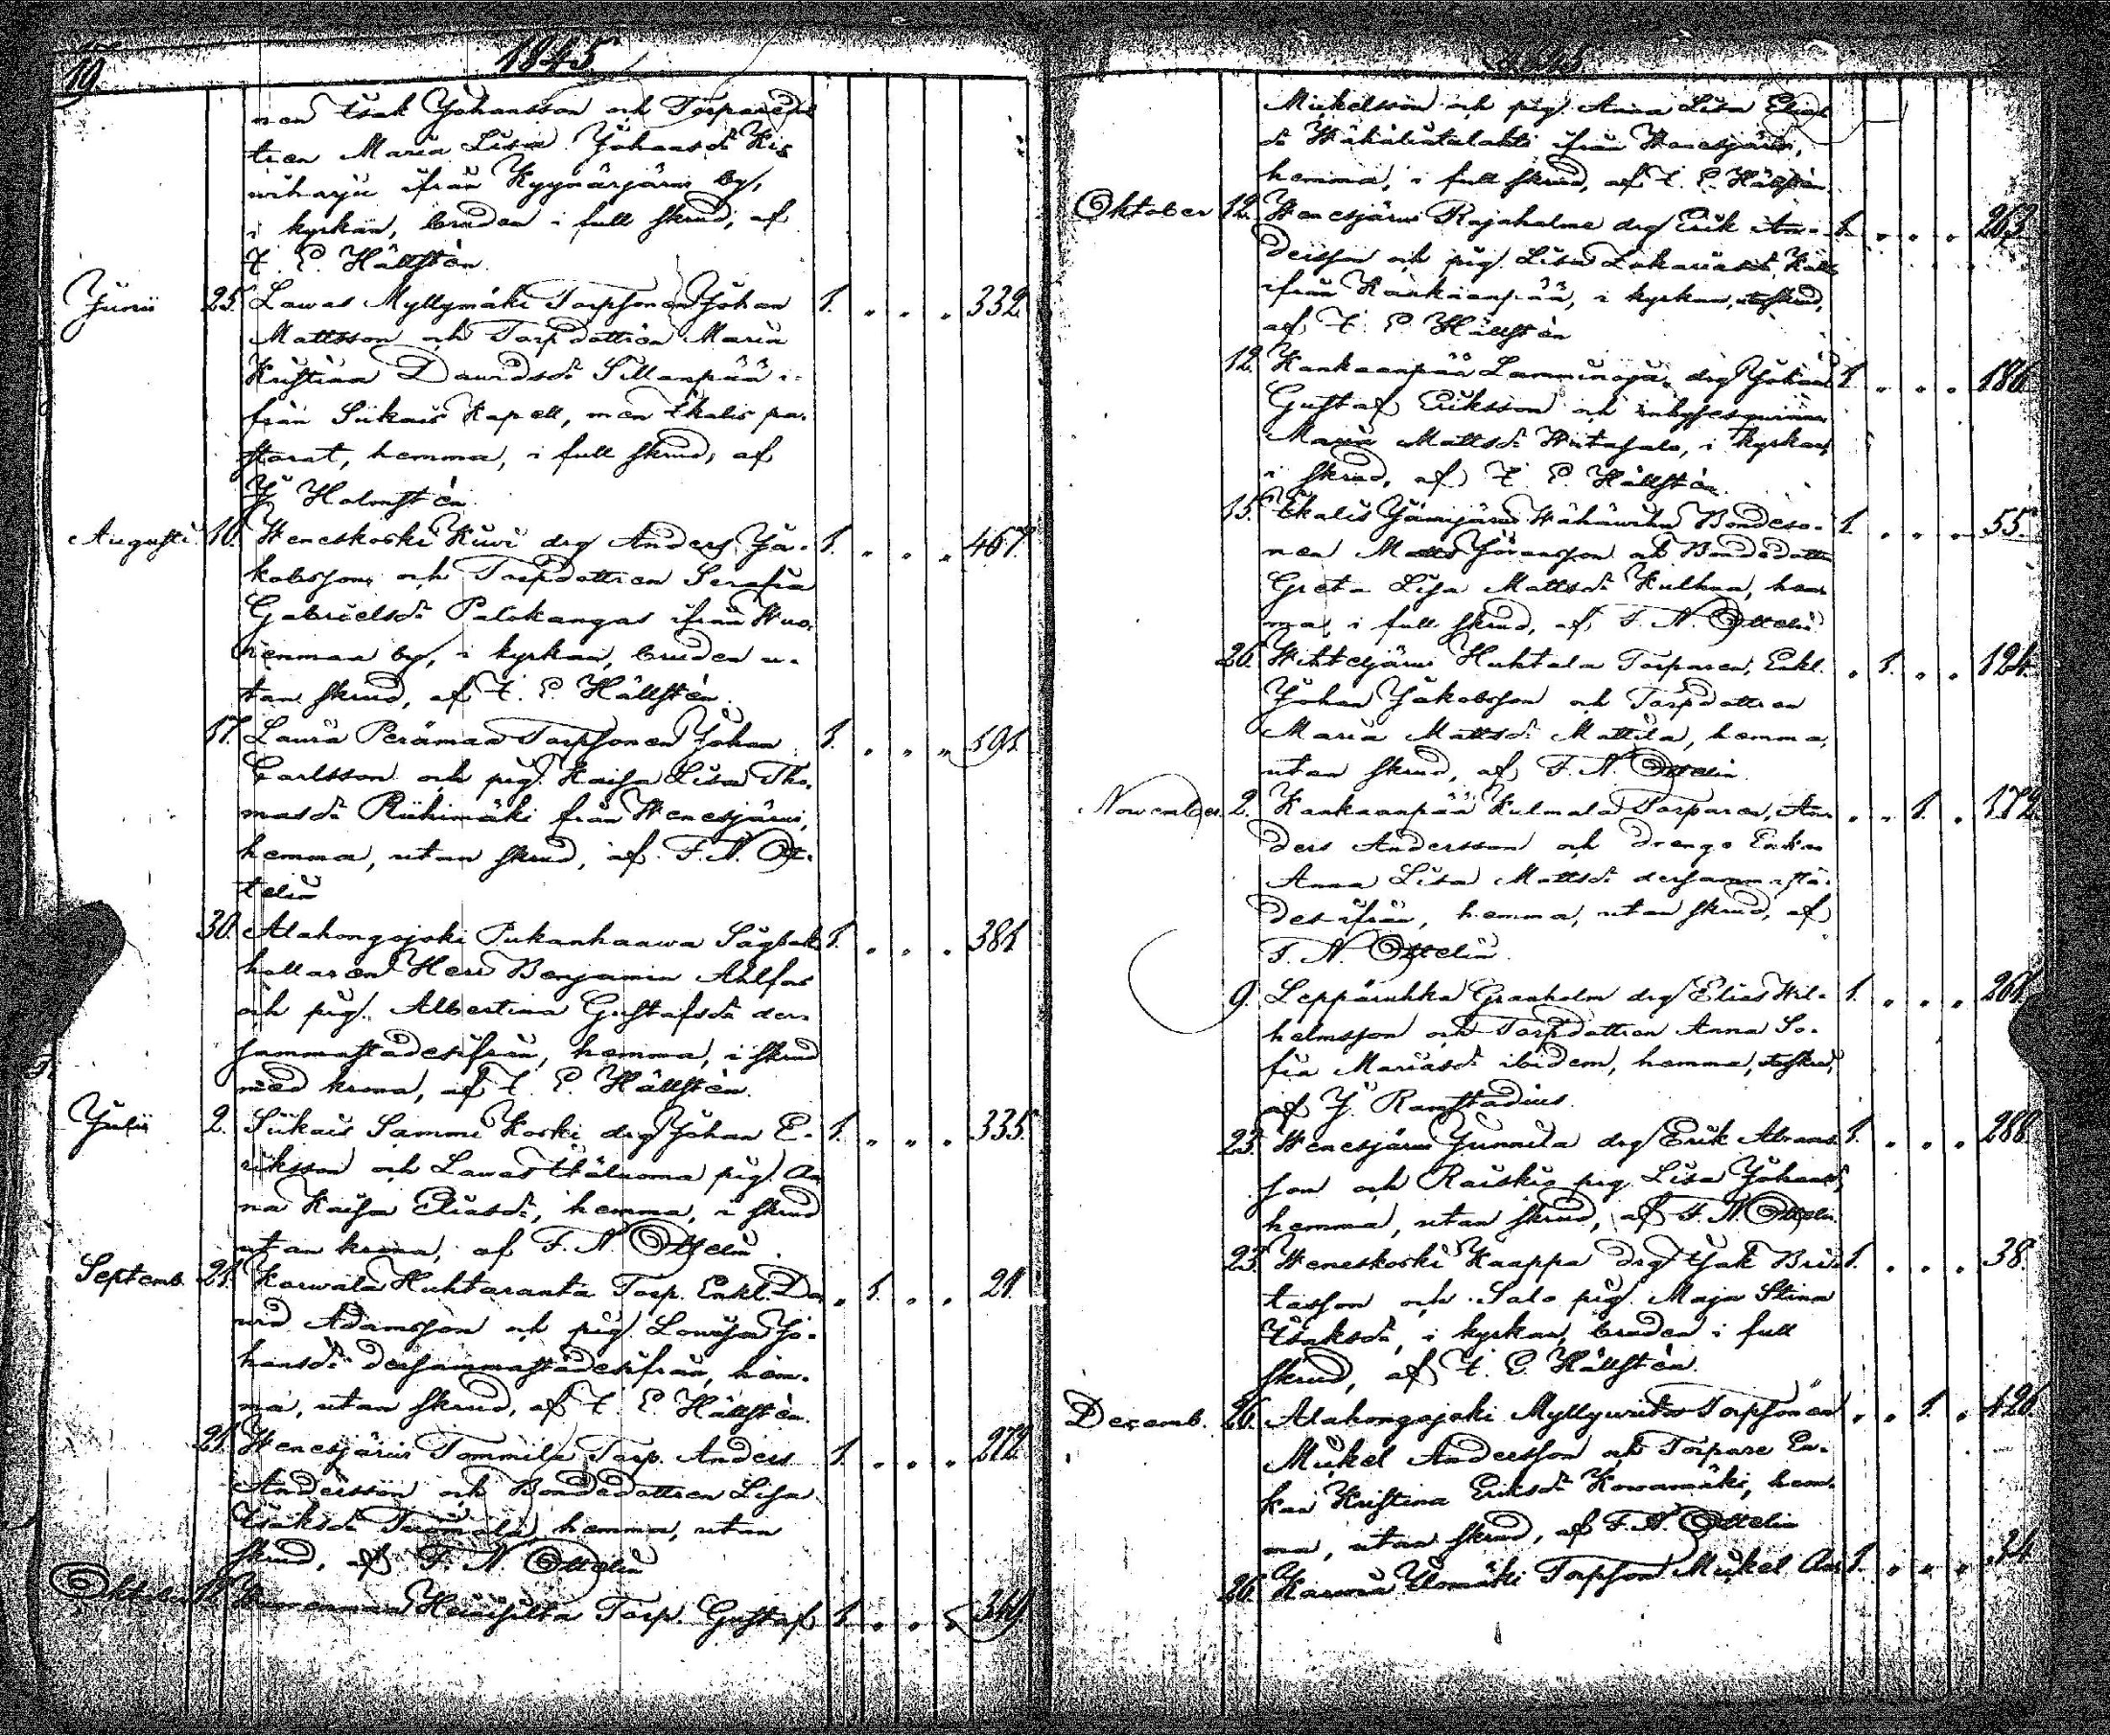 19.
1845.
nen Isak Johansson och Torparedot
tren Maria Lisa Johansd:r Kis
wiharju ifrån Kyynärjärwi by,
i kyrkan, bruden i full skrud, af
F. E. Hällstén.
Junii 25. Lawas Myllymäki Torpsonen Johan 1. „ „ „ 332.
Mattsson och Torpdottren Maria
Kristina Dawidsd:r Sillanpää i-
från Siikais Kapell, men Ikalis pa-
storat, hemma, i full skrud, af
J. Holmstén.
Augusti 10. Weneskoski Kiwi drg Anders Ja- 1. „ „ „ 467.
kobsson och Torpdottren Serafia
Gabrielsd:r Palokangas ifrån Wuo-
renmaa by, i kyrkan, bruden u-
tan skrud, af F. E. Hällstén.
17. Lauria Perämaa Torpsonen Johan 1. „ „ „ 591.
Carlsson och pig. Kaisa Lisa Tho-
masd:r Riihimäki från Wenesjärwi,
hemma, utan skrud, af F. N. Ot-
telin
30. Alahongojoki Pukanhaawa Sågbok 1. „ „ „ 381.
hållaren Herr Benjamin Ahlfors
och pig. Albertina Gustafsd:r der-
sammastädesifrån, hemma, i skrud
med krona, af F. E. Hällstén.
Julii 2. Siikais Sammi Koski drg Johan E- 1. „ „ „ 335.
riksson och Lawas pig. An
na Kaisa Eliasd:r, hemma, i skrud
utan krona, af F. N. Ottelin
Septemb. 21. Karwala Huhtaranta Torp. Enkl. Da „ 1. „ „ 21.
wid Adamsson och pig. Lowisa Jo-
hansd:r dersammastädesifrån, hem-
ma, utan skrud, af F. E. Hällstén.
21. Wenesjärwi Tommila Torp. Anders 1. „ „ „ 272.
Andersson och Bondedottren Lisa
Isaksd:r Tuomala, hemma, utan
skrud, af F. N. Ottelin
Oktober 12. Heinisilta Torp. Gustaf 1. „ „ „ 349.
1845.
Mickelsson och pig. Anna Lisa Elias
d:r ifrån Wenesjärwi,
hemma, i full skrud, af F. E. Hällstén.
Oktober 12. Wenesjärwi Rajaholme drg Erik An- 1. „ „ „ 263.
dersson och pig. Lisa Zakariasd:r
ifrån Kankaanpää, i kyrkan, utskrud,
af F. E. Hällstén
12. Kankaanpää Lamminoja drg Johan 1. „ „ „ 186.
Gustaf Eriksson och inhysesqvinna
Maria Mattsd:r Wiitasalo, i kyrkan,
i skrud, af F. E. Hällstén.
15. Ikalis Jämijärwi Bondeso- 1. „ „ „ 55.
nen Matts Göransson och Bondedottr
Greta Lisa Mattsd:r Kulhua, hem
ma, i full skrud, af F. N. Ottelin
26. Wihtejärwi Huhtala Torparen, Enkl. „ 1. „ „ 124.
Johan Jakobsson och Torpdottren
Maria Mattsd:r Mattila, hemma,
utan skrud, af F. N. Ottelin.
November 2. Kankaanpää Kulmala Torparen, An „ „ 1. „ 172.
ders Andersson och drenge Enkan
Anna Lisa Mattsd:r dersammastä-
desifrån, hemma, utan skrud, af
F. N. Ottelin.
9. Leppäruhka Granholm drg Elias Wil- 1. „ „ „ 261.
helmsson och Torpdottren Anna So-
fia Mariasd:r ibidem, hemma, utskrud,
af J. Ramstadius.
23. Wenesjärwi Junnila drg Erik Abrams 1. „ „ „ 288.
son och Raiskio pig. Lisa Johansd:r,
hemma, utan skrud, af F. N. Ottelin.
23. Weneskoski Kaappa drg Isak Bri 1. „ „ „ 38.
tasson och Salo pig. Maja Stina
Isaksd:r, i kyrkan, bruden i full
skrud, af F. E. Hällstén.
Decemb. 26. Alahongojoki Torpsonen „ „ 1. „ 426.
Mickel Andersson och Torpare En-
kan Kristina Eriksd:r Kowamäki, hem-
ma, utan skrud, af F. N. Ottelin
26. Karwia Ylomäki Torpson Mickel An 1. „ „ „ 74